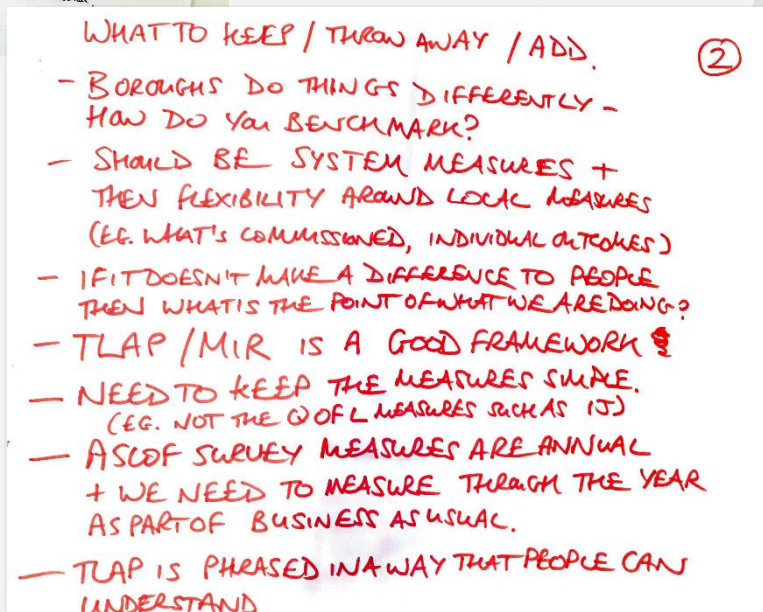 WHAT TO KEEP / THROW AWAY / ADD.
②
- BOROUGHS DO THINGS DIFFERENTLY -
HOW DO YOU BENCHMARK?
- SHOULD BE SYSTEM MEASURES +
THEN FLEXIBILITY AROUND LOCAL MEASURES
(EG. WHAT'S COMMISSIONED, INDIVIDUAL OUTCOMES)
- IF IT DOESN'T MAKE A DIFFERENCE TO PEOPLE
THEN WHAT IS THE POINT OF WHAT WE ARE DOING?
- TLAP / MIR IS A GOOD FRAMEWORK
- NEED TO KEEP THE MEASURES SIMPLE.
(EG. NOT THE Q OF L MEASURES SUCH AS 1J)
- ASCOF SURVEY MEASURES ARE ANNUAL
+ WE NEED TO MEASURE THROUGH THE YEAR
AS PART OF BUSINESS AS USUAL.
- TLAP IS PHRASED IN A WAY THAT PEOPLE CAN
UNDERSTAND